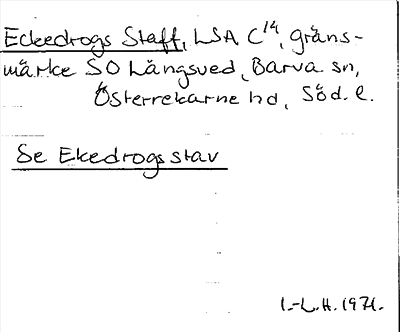 Eckedrogs Staff, LSA C14, gräns-
märke SO Långsved, Barva sn,
Österrekarne hd, Söd. l.
Se Ekedrogsstav
I.-L.H. 1971.